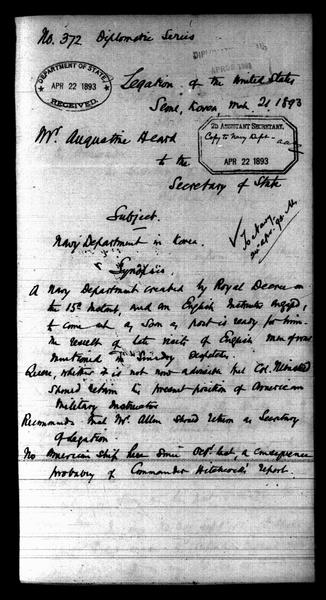 No. 372 Diplomatic Series
DEPARTMENT OF STATE
APR 22 1893
RECEIVED.
Legation of the United States
Seoul, Korea, Mch 21 1893
Mr. Augustine Heard
2D ASSISTANT SECRETARY.
Copy to Navy Dept.
APR 22 1893
to the
Secretary of State
Subject.
Navy Department in Korea.
Synopsis.
A Navy Department created by Royal Decree on
the 15th instant, and an English Instructor engaged,
to come out as soon as post is ready for him.
The result of late visits of English men of war
mentioned in Dispatch.
Query, whether it is not now advisable that Col. Nienstead
should return to present position of American
Military Instructor
Recommends that Mr. Allen should return as Secretary
of Legation
No American ship here since Octr. last, a consequence
probably of Commander Hitchcock's report.